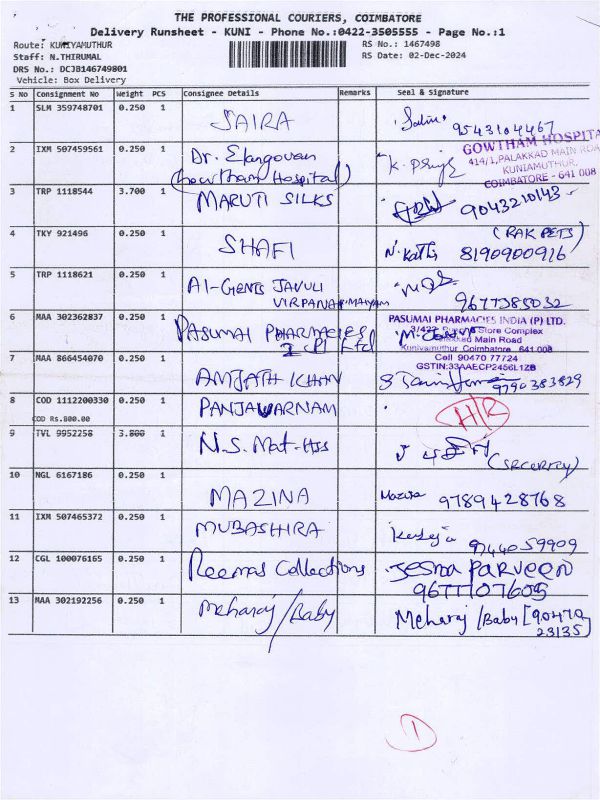 THE PROFESSIONAL COURIERS, COIMBATORE
Delivery Runsheet - KUNI - Phone No.:0422-3505555 - Page No.:1
Route: KUNIYAMUTHUR
RS No.: 1467498
Staff: N.THIRUMAL
RS Date: 02-Dec-2024
DRS No.: DCJB146749801
Vehicle: Box Delivery
S No Consignment No Weight PCS Consignee Details Remarks Seal & Signature
1 SLM 359748701 0.250 1 SAIRA 9543104467
2 IXM 507459561 0.250 1 Dr. Elangovan
(Gowtham Hospital)
GOWTHAM HOSPITAL
414/1, PALAKKAD MAIN ROAD
KUNIAMUTHUR,
COIMBATORE - 641 008
3 TRP 1118544 3.700 1 MARUTI SILKS 9043210143
4 TKY 921496 0.250 1 SHAFI (RAK PETS)
8190900916
5 TRP 1118621 0.250 1 A1-GENTS JAVULI
VIRPANAI MAIYAM
9677385032
6 MAA 302362837 0.250 1 PASUMAI PHARMACIES
I (P) Ltd
PASUMAI PHARMACIES INDIA (P) LTD.
Store Complex
Main Road
Kuniyamuthur Coimbatore 641 008
Cell 90470 77724
GSTIN:33AAECP2456L1ZB
7 MAA 866454070 0.250 1 AMJATH KHAN 9790383829
8 COD 1112200330 0.250 1 PANJAVARNAM H/R
COD Rs.800.00
9 TVL 9952258 3.800 1 N.S. Mat-Hss
(SECURITY)
10 NGL 6167186 0.250 1 MAZINA Mazina 9789428768
11 IXM 507465372 0.250 1 MUBASHIRA 9744059909
12 CGL 100076165 0.250 1 Reemas Collections Jesma PARVEEN
9677107605
13 MAA 302192256 0.250 1 Meharaj/Baby Meharaj/Baby [90470
23135]
1